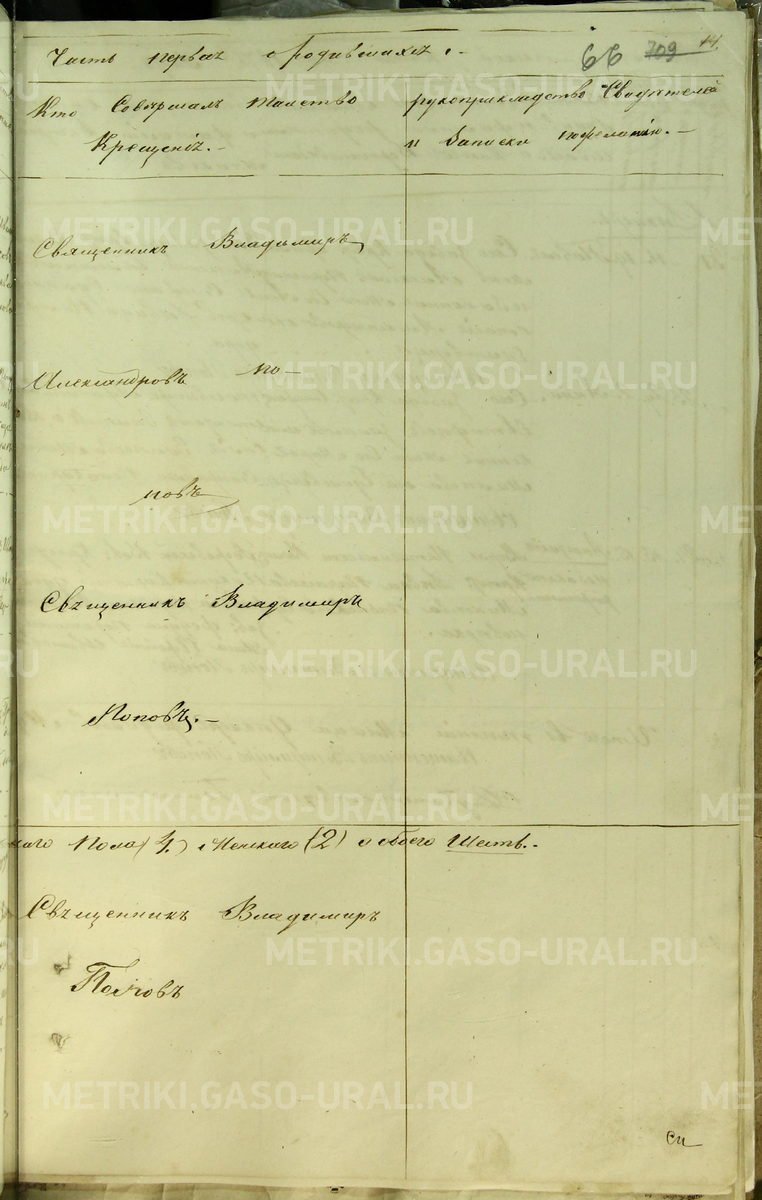 Часть первая о родившихся.
66 709 14.
Кто Совершалъ Таинство
Крещенія.-
рукоприкладство Свидѣтелей
и Записки по желанію.-
Священникъ Владимиръ
Александровъ По-
повъ
Священникъ Владимиръ
Поповъ.-
Пола (4.) Женскаго (2) обоего Шесть.-
Священникъ Владимиръ
Поповъ
METRIKI.GASO-URAL.RU